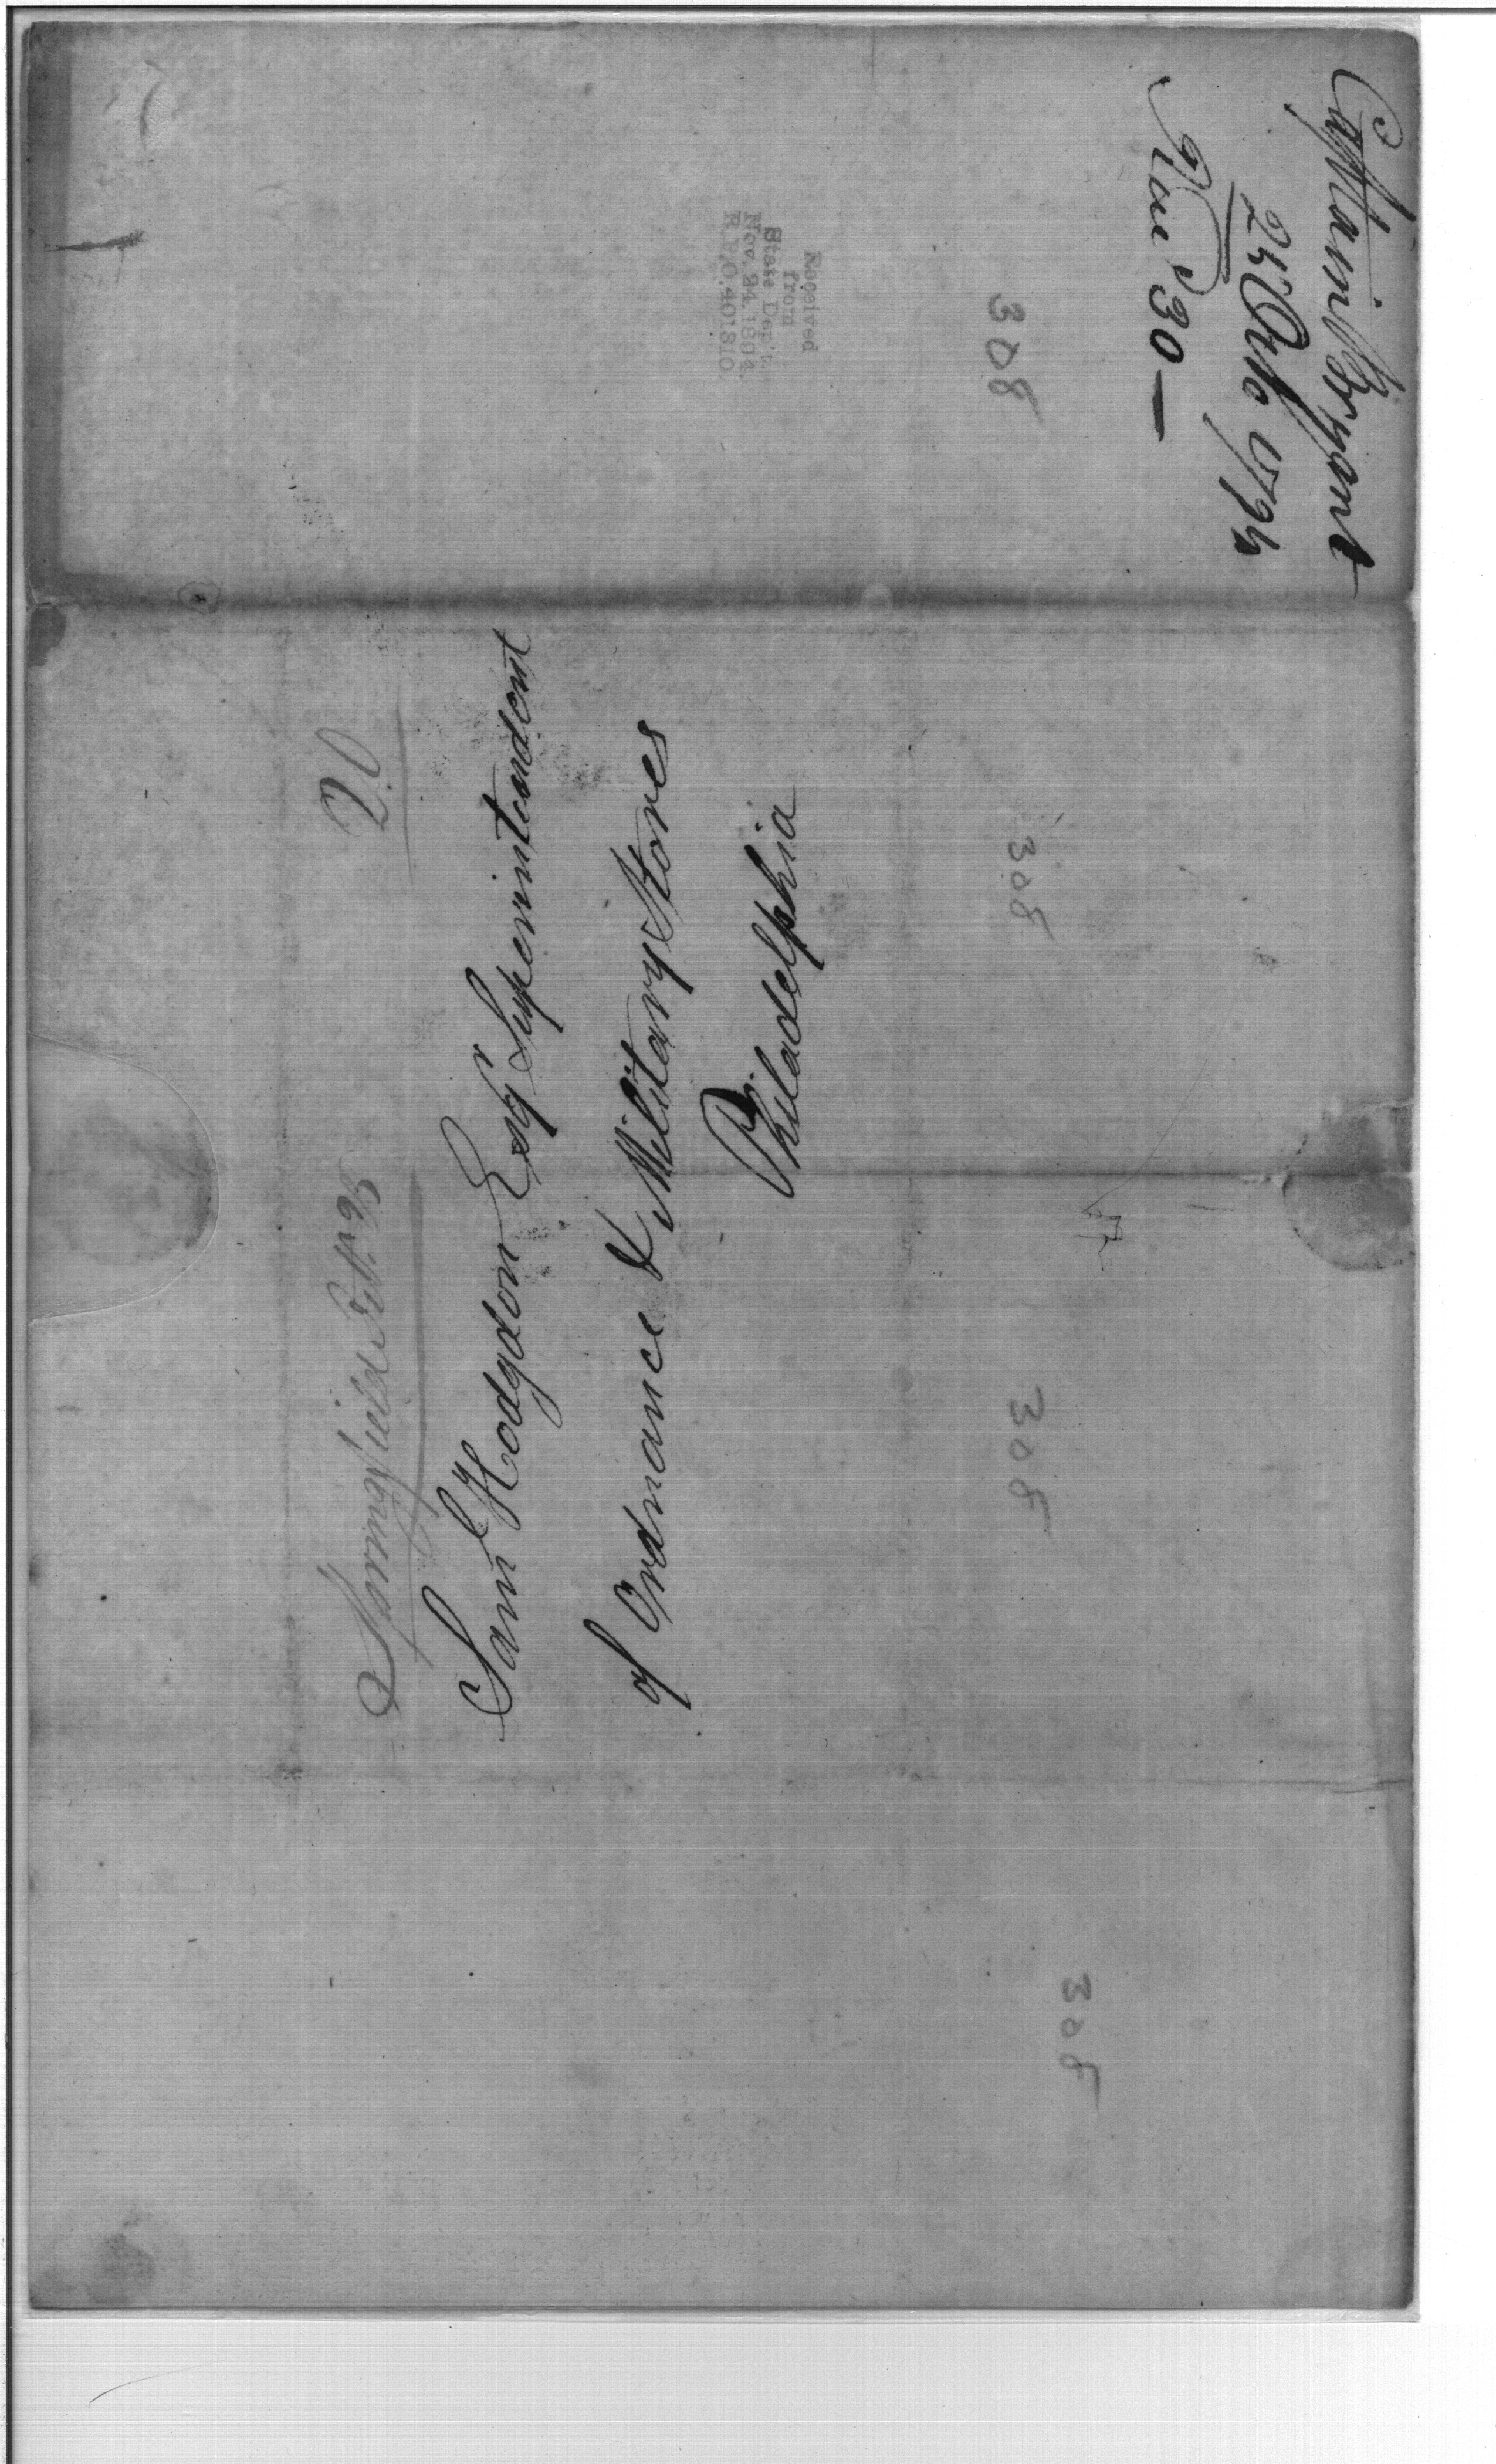 Captain Bryant
25 Octo 1794
Nov 30 —
308
Received
from
State Dep't.
Nov. 24, 1894.
R.P.O. 401810
20
Springfield
Saml Hodgdon Esqr Superintendent
of Ordnance & Military Stores
Philadelphia
308
308
308